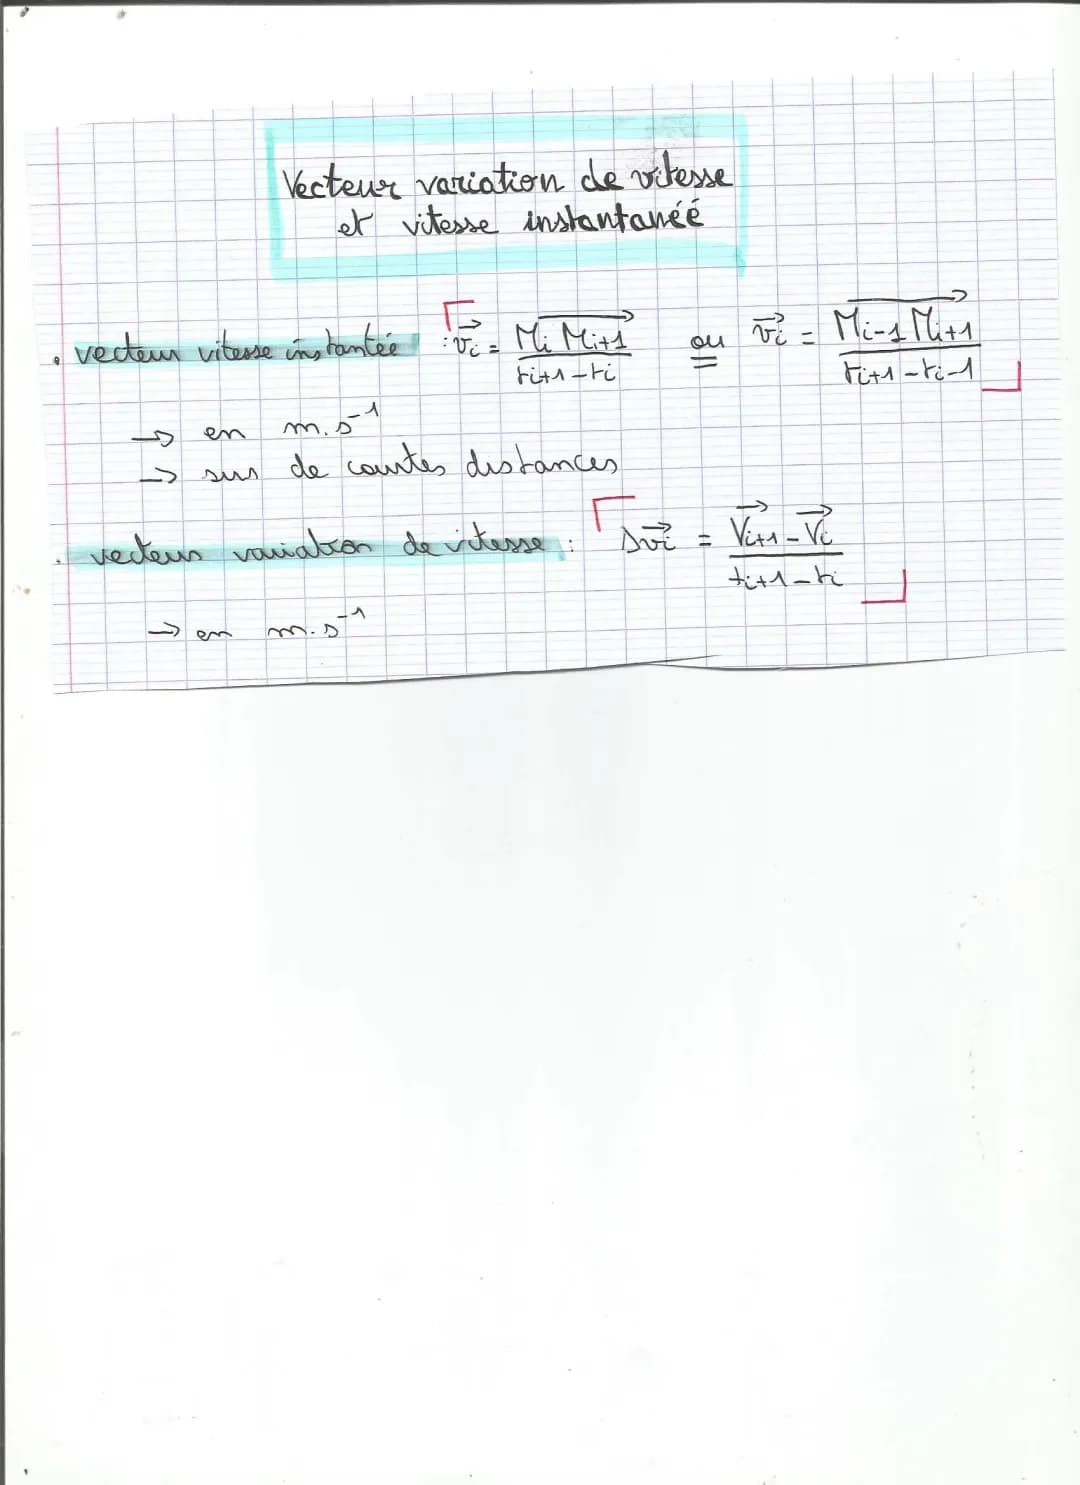 Vecteur variation de vitesse
et vitesse instantanéé
• vecteur vitesse instantée : $\vec{v_i} = \frac{\overrightarrow{M_i M_{i+1}}}{t_{i+1} - t_i}$ ou $\vec{v_i} = \frac{\overrightarrow{M_{i-1} M_{i+1}}}{t_{i+1} - t_{i-1}}$
→ en m.s⁻¹
→ sur de courtes distances
• vecteur variation de vitesse : $\Delta\vec{v_i} = \frac{\vec{V_{i+1}} - \vec{V_i}}{t_{i+1} - t_i}$
→ en m.s⁻¹